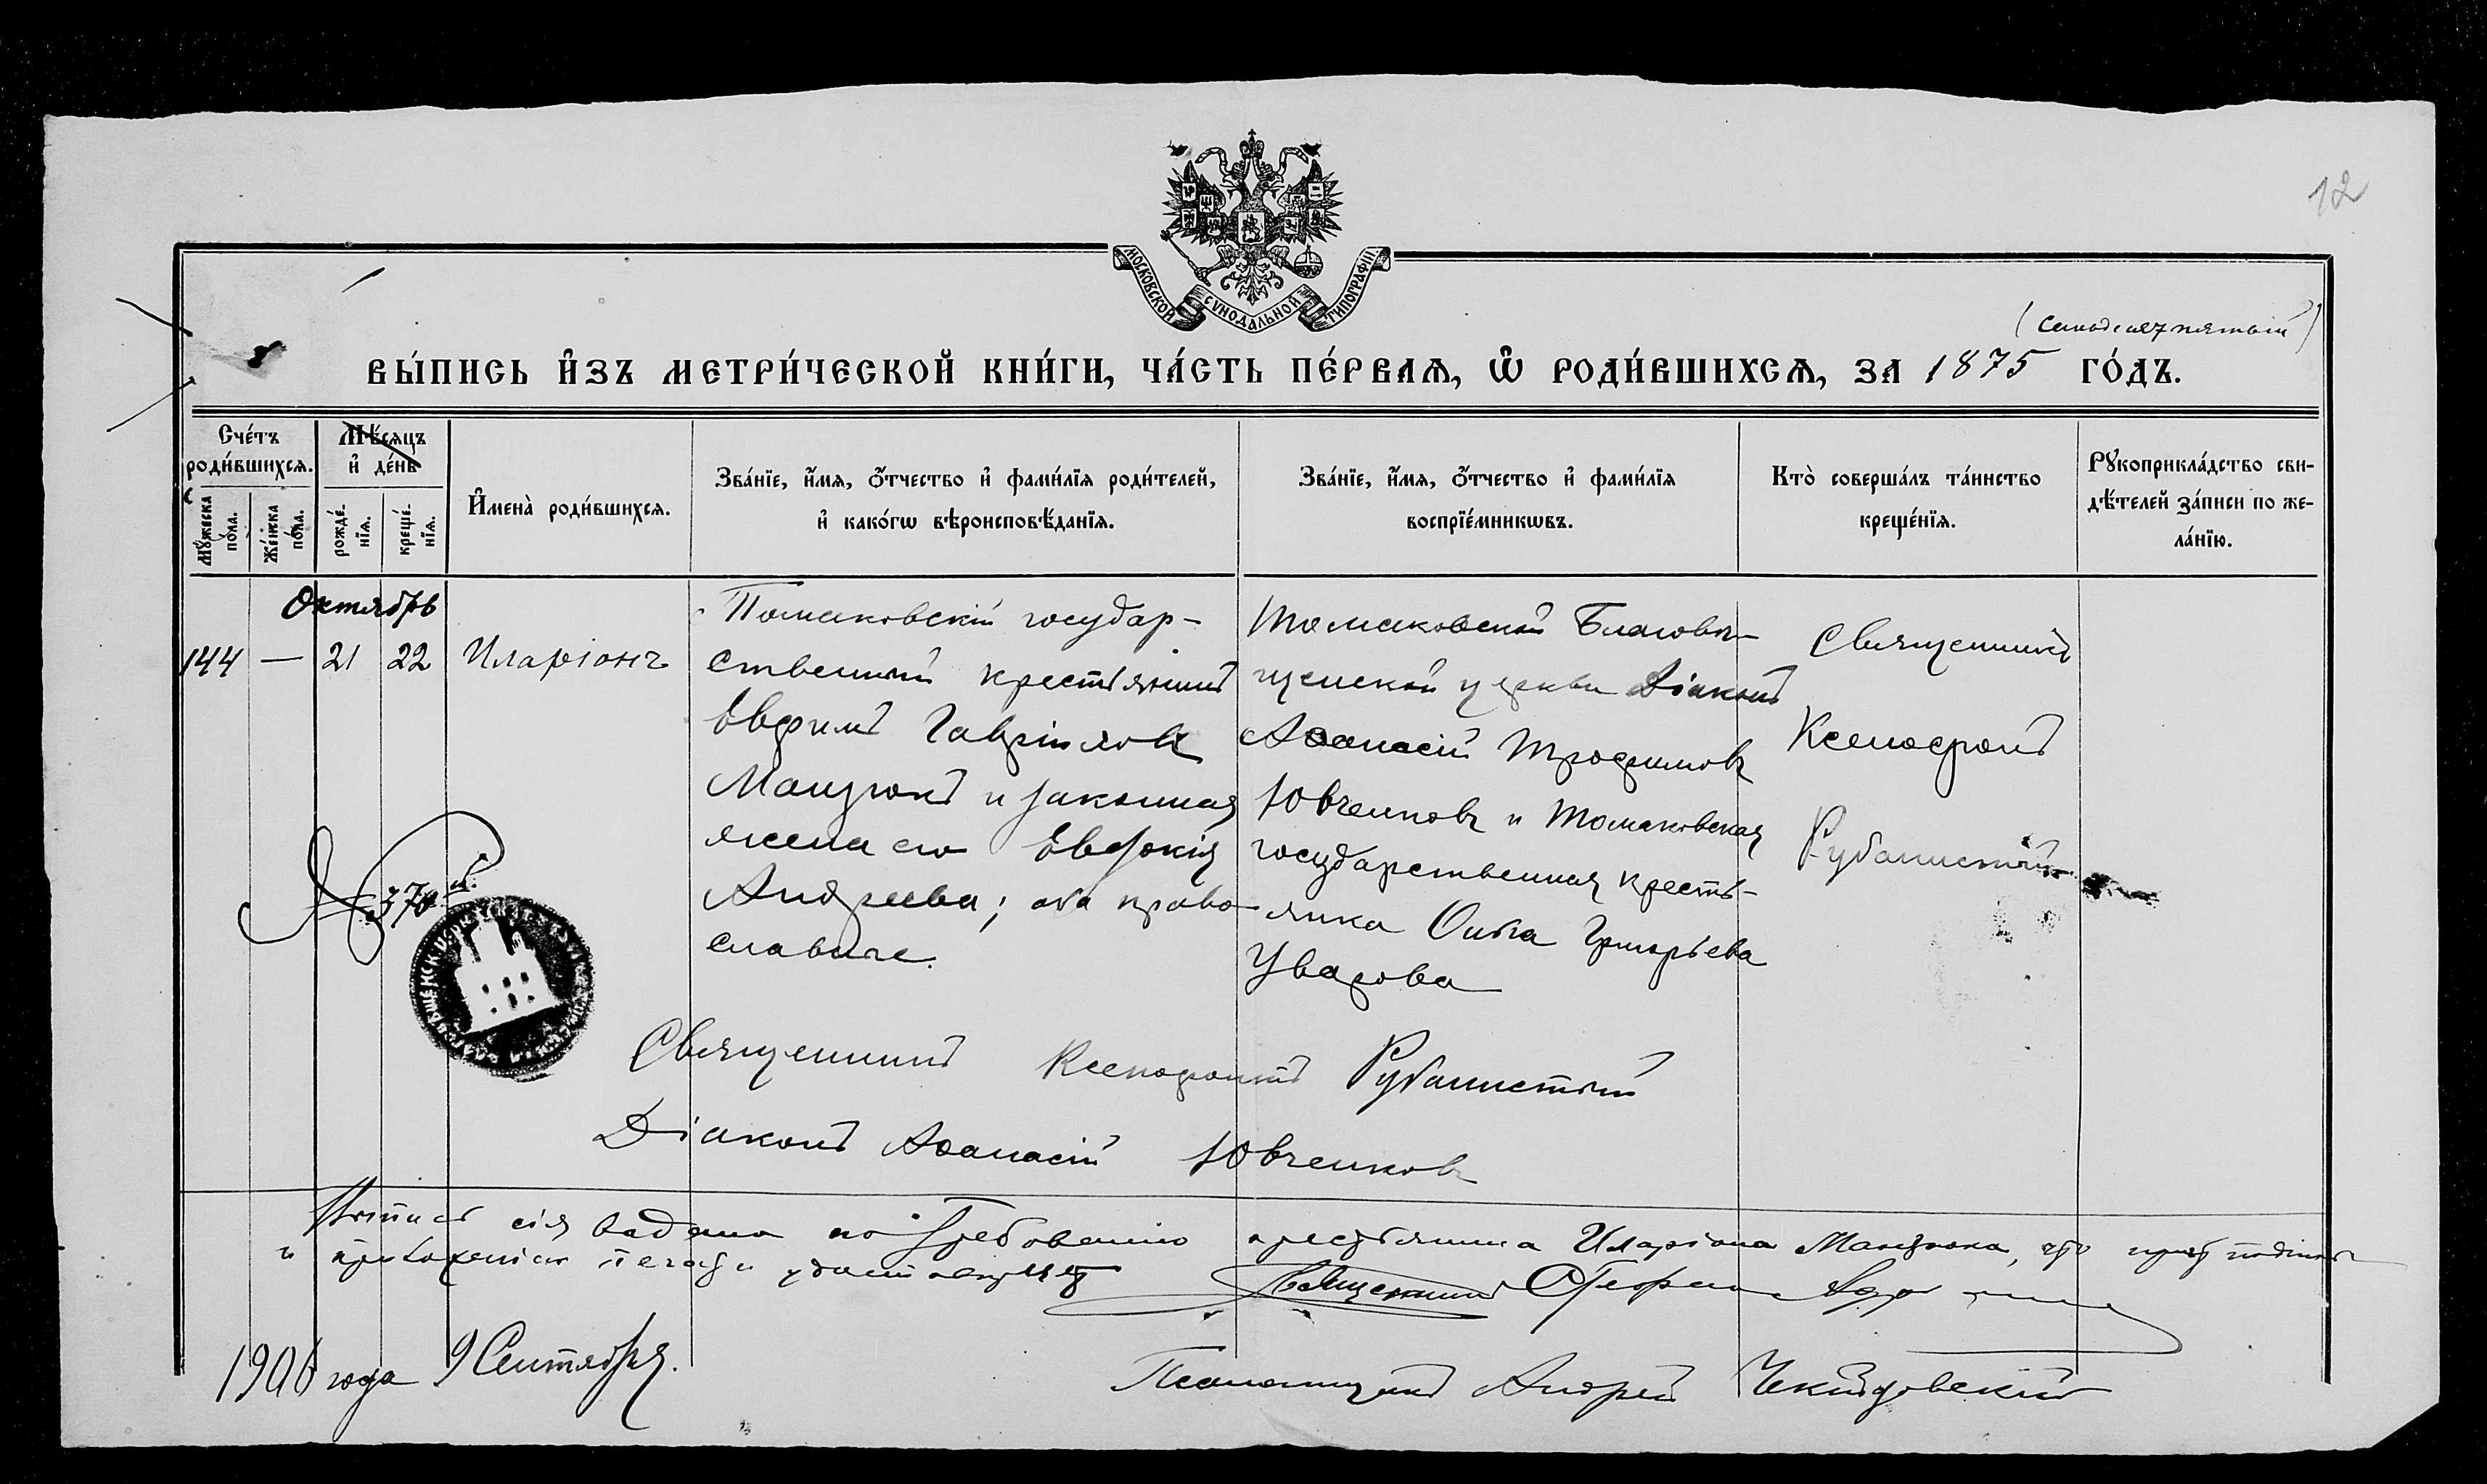 12
МОСКОВСКОЙ СѴНОДАЛЬНОЙ ТИПОГРАФІИ
(семьдесятъ пятый)
ВЫ́ПИСЬ И҆ЗЪ МЕТРИ́ЧЕСКОЙ КНИ́ГИ, ЧА́СТЬ ПЕ́РВАѦ, Ѿ РОДИ́ВШИХСѦ, ЗА 1875 ГО́ДЪ.
Сче́тъ роди́вшихсѧ.
Мꙋ́жеска по́ла.
Же́нска по́ла.
Мѣ́сяцъ и҆ де́нь
рожде́нїѧ.
креще́нїѧ.
И҆мена̀ роди́вшихсѧ.
Зва́нїе, и҆́мѧ, ѻ҆́тчество и҆ фами́лїѧ роди́телей,
и҆ како́гѡ вѣроисповѣ́данїѧ.
Зва́нїе, и҆́мѧ, ѻ҆́тчество и҆ фами́лїѧ
воспрїе́мникѡвъ.
Кто̀ соверша́лъ та́инство
креще́нїѧ.
Рꙋкоприкла́дство сви-
дѣ́телей за́писи по же-
ла́нїю.
Октябрь
144 — 21 22 Иларіонъ
Томаковскій государ-
ственный крестьянинъ
Евфимъ Гавріиловъ
Манзюкъ и законная
жена его Евдокія
Андреева; оба право-
славные.
Томаковской Благовѣ-
щенской церкви Діаконъ
Аѳанасій Трофимовъ
Ювченковъ и Томаковская
государственная кресть-
янка Ольга Григорьева
Уварова
Священникъ
Ксенофонтъ
Рубанистый
№ 370й.
Священникъ Ксенофонтъ Рубанистый
Діаконъ Аѳанасій Ювченковъ
Выпись сія выдана по требованію крестьянина Иларіона Манзюка, что причтъ подписомъ
и приложеніемъ печати удостовѣряетъ
Священникъ
1906 года 9 Сентября.
Псаломщикъ Андрей